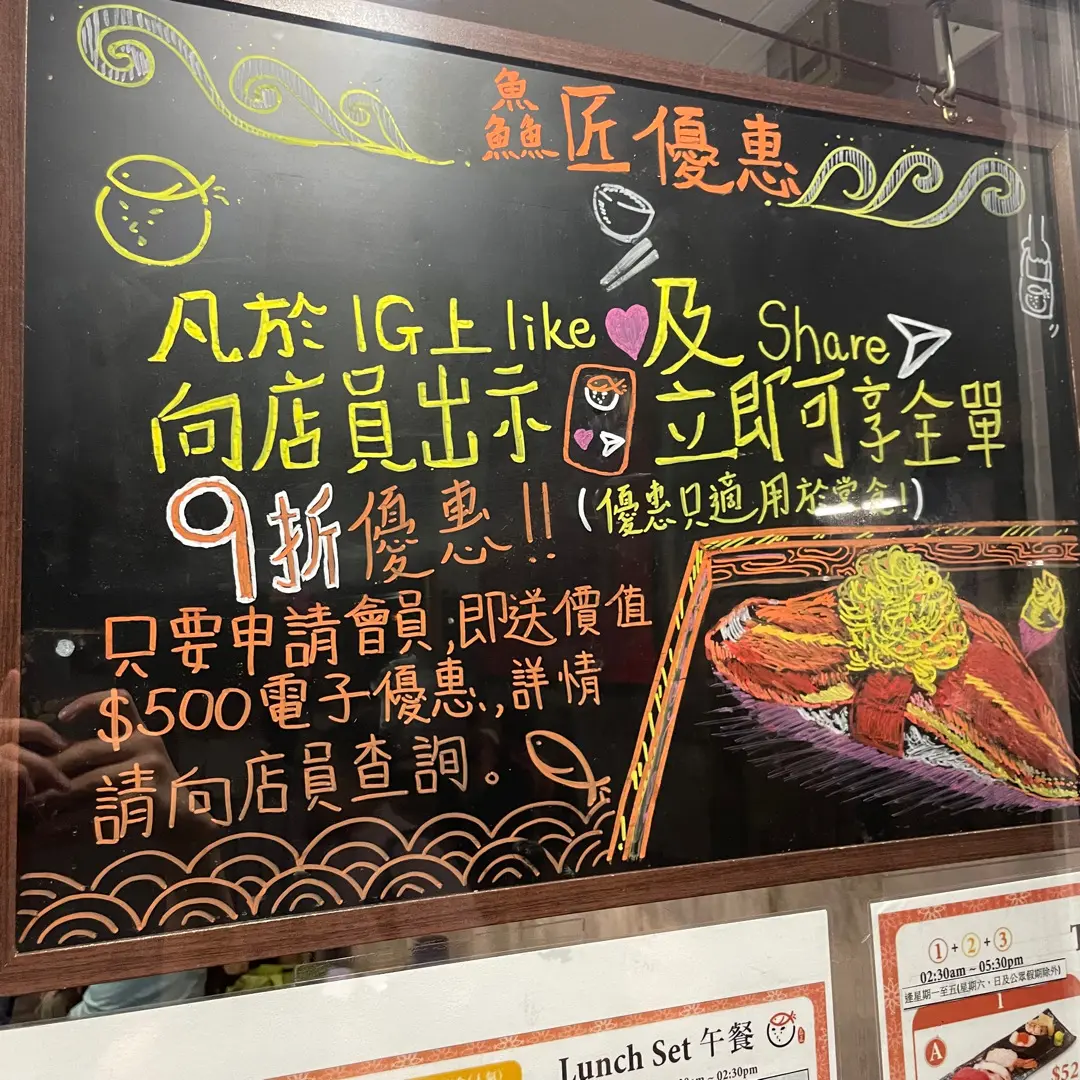 鱻匠優惠
凡於IG上like及Share
向店員出示立即可享全單
9折優惠!!(優惠只適用於堂食!)
只要申請會員,即送價值
$500電子優惠,詳情
請向店員查詢。
Lunch Set 午餐
~ 02:30pm
1+2+3
02:30am ~ 05:30pm
逢星期一至五(星期六,日及公眾假期除外)
1
A
$52